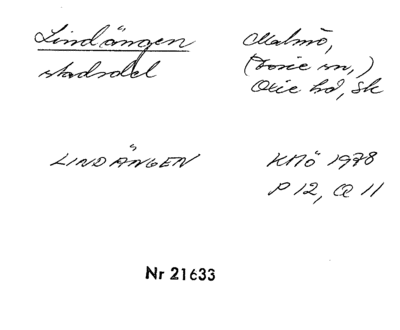 Lindängen
stadsdel
Malmö,
(Fosie sn,)
Oxie hd, Sk
LINDÄNGEN
KMÖ 1978
P 12, Q 11
Nr 21633